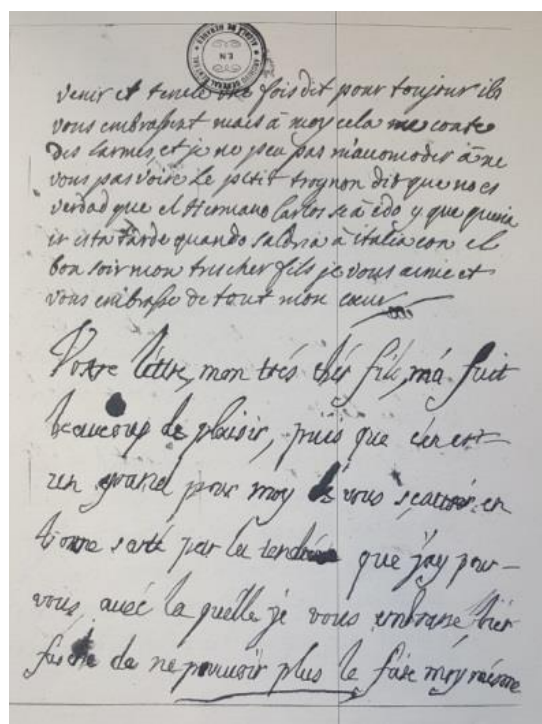 ARCHIVO GENERAL
venir et tenele une fois dit pour toujour ils
vous embrassent mais a moy cela me coute
des larmes, et je ne peu pas m'acomoder a ne
vous pas voire Le petit trognon dit que no es
verdad que el Hermano Carlos se a ido y que queria
ir esta tarde quando saldria a italia con el
bon soir mon tres cher fils je vous aime et
vous embrasse de tout mon cœur
Votre lettre, mon trés chér fils, m'a fait
beaucoup de plaisir, puis que c'en est
un grand pour moy de vous sçavoir en
bonne santé par la tendresse que j'ay pour
vous, avéc la quélle je vous embrasse, bien
faschée de ne pouvoir plus le faire moy mésme